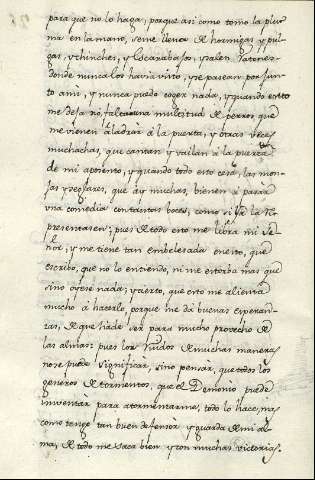 para que no lo haga, porque asi como tomo la plu
ma en la mano, se me llena de hormigas y pul
gas, y chinches, y Escarabajos, y salen ratones
donde nunca los havia visto, y se pasean por jun
to a mi, y nunca puedo coger nada, y quando esto
me deja no falta una multitud de perros que
me vienen à ladrar à la puerta, y otras veces
muchachas, que cantan y vailan à la puerta
de mi aposento, y quando todo esto cesa, las mon
jas y seglares, que ay muchas, vienen à pasar
una comedia con tantas voces, como si ya la re
presentasen; pues de todo esto me libra mi Se
ñor, y me tiene tan embelesada en esto, que
escribo, que no lo entiendo, ni me estorba mas que
sino oyese nada; y cierto, que esto me alienta
mucho à hacerlo, porque me dà buenas esperan
zas, de que hà de ser para mucho provecho de
las almas: pues los ruidos de muchas maneras
no se puede significar, sino pensar, que todos los
generos de tormentos, que el Demonio puede
inventar para atormentarme, todo lo hace, mas
como tengo tan buen defensor y guarda de mi al
ma, de todo me saca bien y con muchas victorias.